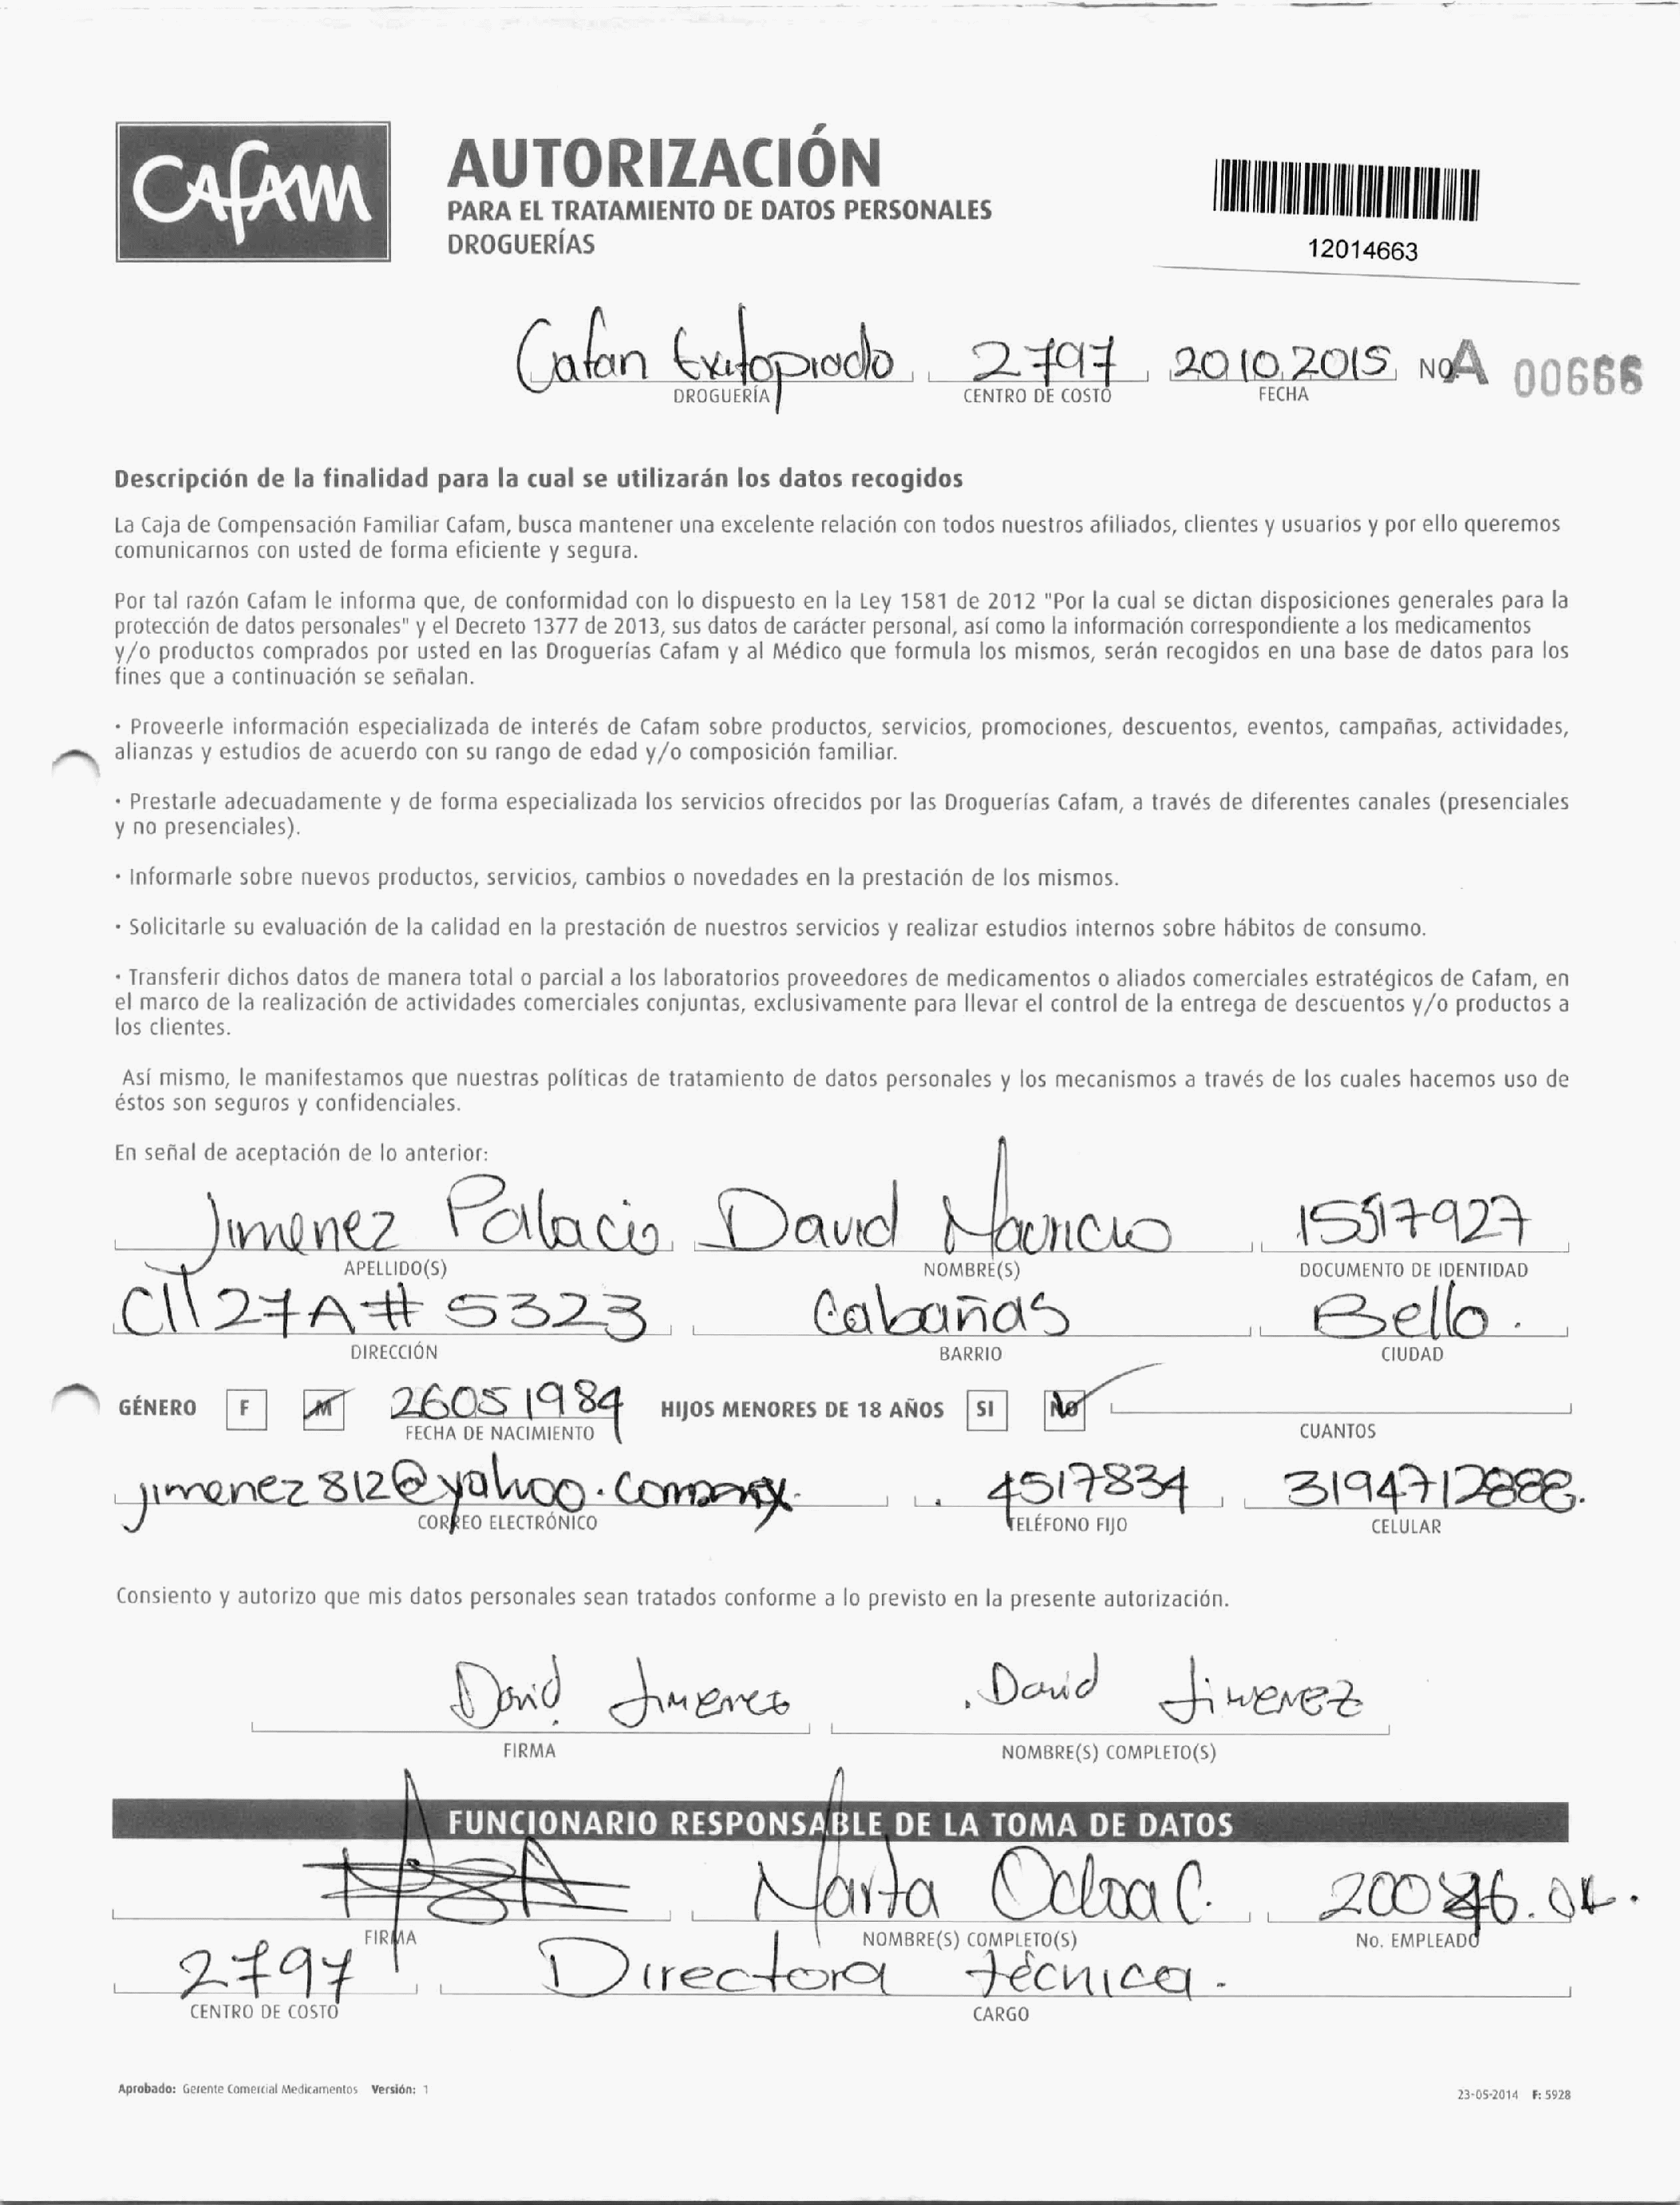 Cafam
AUTORIZACIÓN
PARA EL TRATAMIENTO DE DATOS PERSONALES
DROGUERÍAS
12014663
Cafan Exitoprado 2797 20102015 No. A 00666
DROGUERÍA CENTRO DE COSTO FECHA
Descripción de la finalidad para la cual se utilizarán los datos recogidos
La Caja de Compensación Familiar Cafam, busca mantener una excelente relación con todos nuestros afiliados, clientes y usuarios y por ello queremos
comunicarnos con usted de forma eficiente y segura.
Por tal razón Cafam le informa que, de conformidad con lo dispuesto en la Ley 1581 de 2012 "Por la cual se dictan disposiciones generales para la
protección de datos personales" y el Decreto 1377 de 2013, sus datos de carácter personal, así como la información correspondiente a los medicamentos
y/o productos comprados por usted en las Droguerías Cafam y al Médico que formula los mismos, serán recogidos en una base de datos para los
fines que a continuación se señalan.
· Proveerle información especializada de interés de Cafam sobre productos, servicios, promociones, descuentos, eventos, campañas, actividades,
alianzas y estudios de acuerdo con su rango de edad y/o composición familiar.
· Prestarle adecuadamente y de forma especializada los servicios ofrecidos por las Droguerías Cafam, a través de diferentes canales (presenciales
y no presenciales).
· Informarle sobre nuevos productos, servicios, cambios o novedades en la prestación de los mismos.
· Solicitarle su evaluación de la calidad en la prestación de nuestros servicios y realizar estudios internos sobre hábitos de consumo.
· Transferir dichos datos de manera total o parcial a los laboratorios proveedores de medicamentos o aliados comerciales estratégicos de Cafam, en
el marco de la realización de actividades comerciales conjuntas, exclusivamente para llevar el control de la entrega de descuentos y/o productos a
los clientes.
Así mismo, le manifestamos que nuestras políticas de tratamiento de datos personales y los mecanismos a través de los cuales hacemos uso de
éstos son seguros y confidenciales.
En señal de aceptación de lo anterior:
Jimenez Palacio David Mauricio 15517927
APELLIDO(S) NOMBRE(S) DOCUMENTO DE IDENTIDAD
Cll 27A # 5323 Cabañas Bello.
DIRECCIÓN BARRIO CIUDAD
GÉNERO F M 26051984 HIJOS MENORES DE 18 AÑOS SI NO
FECHA DE NACIMIENTO CUANTOS
jimenez812@yahoo.com 4517834 3194712888.
CORREO ELECTRÓNICO TELÉFONO FIJO CELULAR
Consiento y autorizo que mis datos personales sean tratados conforme a lo previsto en la presente autorización.
David Jimenez David Jimenez
FIRMA NOMBRE(S) COMPLETO(S)
FUNCIONARIO RESPONSABLE DE LA TOMA DE DATOS
Marta Ochoa C.
FIRMA NOMBRE(S) COMPLETO(S) No. EMPLEADO
2797 Directora técnica.
CENTRO DE COSTO CARGO
Aprobado: Gerente Comercial Medicamentos Versión: 1
23-05-2014 F: 5928